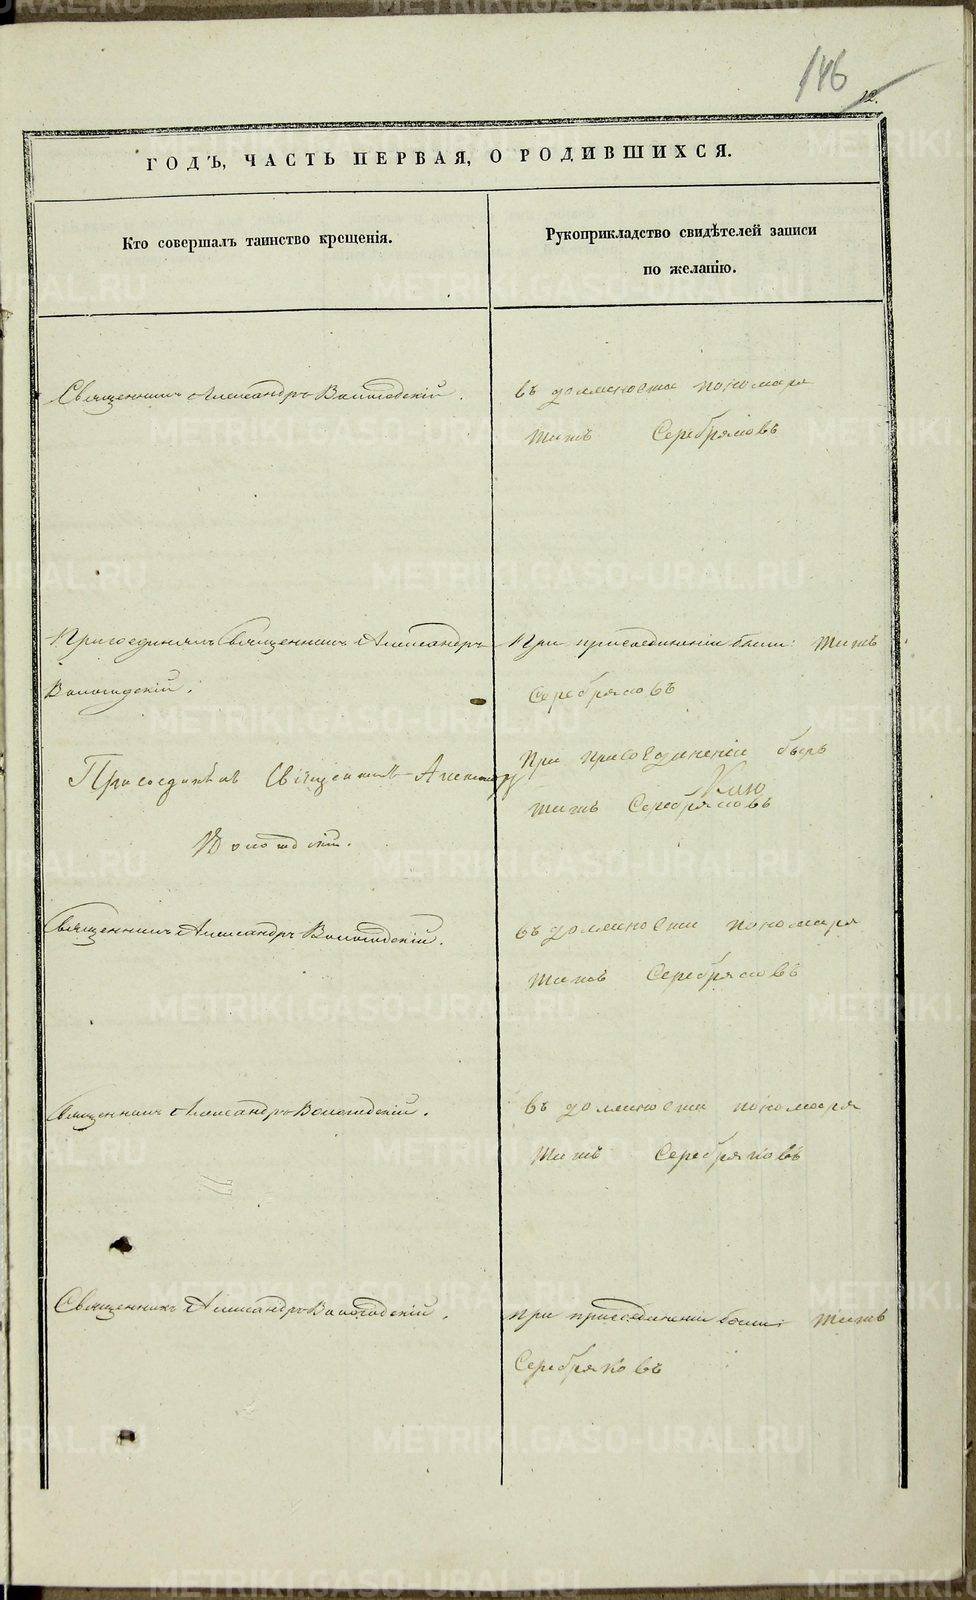 146
12.
ГОДЪ, ЧАСТЬ ПЕРВАЯ, О РОДИВШИХСЯ.
Кто совершалъ таинство крещенія.
Рукоприкладство свидѣтелей записи
по желанію.
Священникъ Александръ Вологодскій.
въ должности пономаря
Титъ Серебряковъ
Присоединялъ Священникъ Александръ
Вологодскій.
При присоединеніи были: Титъ
Серебряковъ
Присоединялъ Священникъ Александръ
Вологодскій.
При присоединеніи былъ
Титъ Серебряковъ
Священникъ Александръ Вологодскій.
въ должности пономаря
Титъ Серебряковъ
Священникъ Александръ Вологодскій.
въ должности пономаря
Титъ Серебряковъ
Священникъ Александръ Вологодскій.
при присоединеніи были: Титъ
Серебряковъ
METRIKI.GASO-URAL.RU